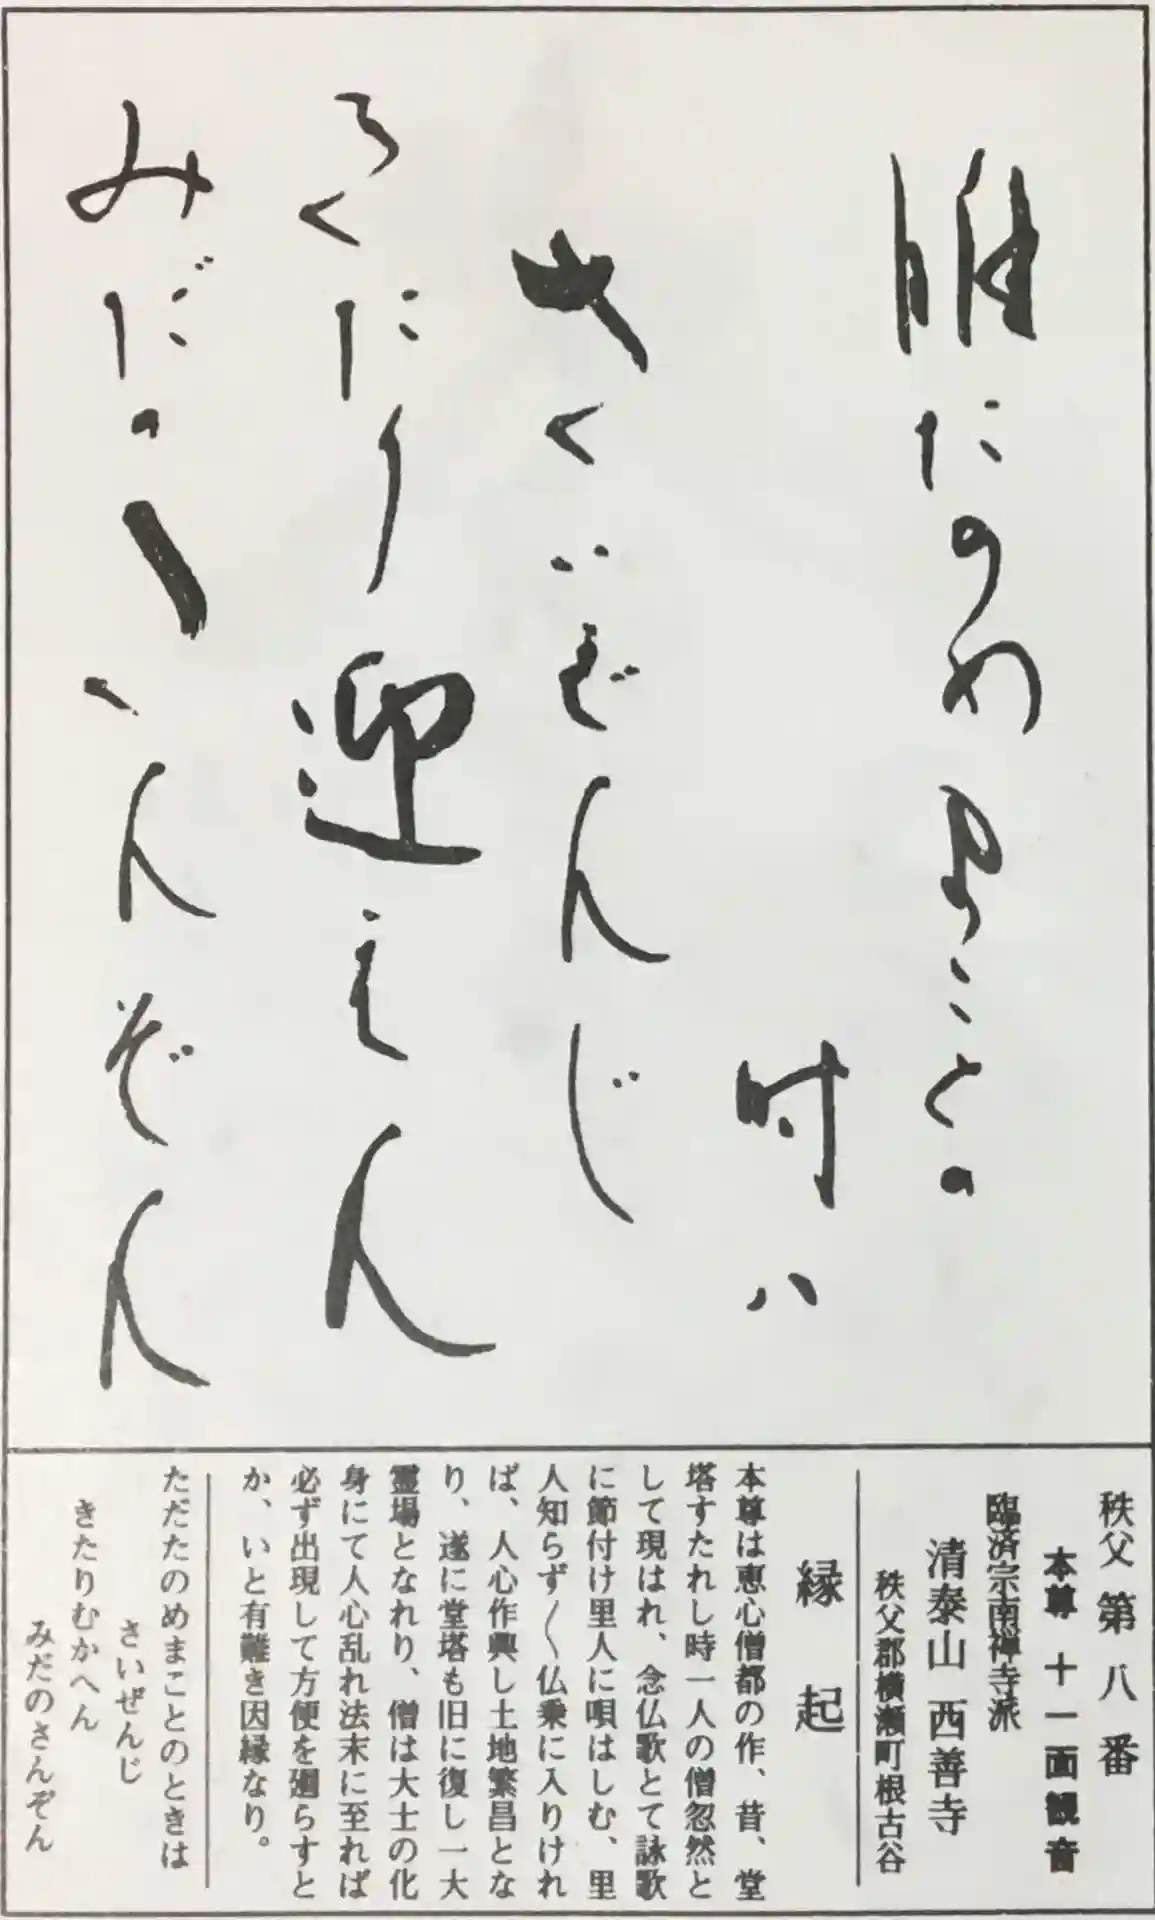 唯たのめまことの
時ハ
さいぜんじ
きたり迎えん
みだのさんぞん
秩父第八番
本尊 十一面観音
臨済宗南禅寺派
清泰山 西善寺
秩父郡横瀬町根古谷
縁起
本尊は恵心僧都の作、昔、堂
塔すたれし時一人の僧忽然と
して現はれ、念仏歌とて詠歌
に節付け里人に唄はしむ、里
人知らず〳〵仏乗に入りけれ
ば、人心作興し土地繁昌とな
り、遂に堂塔も旧に復し一大
霊場となれり、僧は大士の化
身にて人心乱れ法末に至れば
必ず出現して方便を廻らすと
か、いと有難き因縁なり。
ただたのめまことのときは
さいぜんじ
きたりむかへん
みだのさんぞん